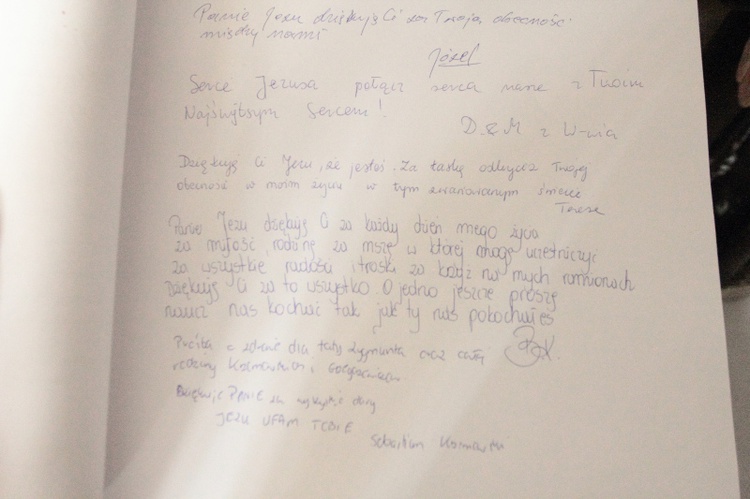 Panie Jezu dziękuję Ci za Twoją obecność
między nami
Józef
Serce Jezusa połącz serca nasze z Twoim
Najświętszym Sercem!
D. & M z W-wia
Dziękuję Ci Jezu, że jesteś. Za łaskę odkrycia Twojej
obecność w moim życiu w tym zwariowanym świecie
Teresa
Panie Jezu dziękuję Ci za każdy dzień mego życia
za miłość, rodzinę za mszę w której mogę uczestniczyć
za wszystkie radości i troski za każdy na mych ramionach
Dziękuję Ci za to wszystko. O jedno jeszcze proszę
naucz nas kochać tak jak ty nas pokochałeś
Prośba o zdrowie dla taty Zygmunta oraz całej
rodziny
Dziękuję Panie za wszystkie dary
JEZU UFAM TOBIE
Sebastian